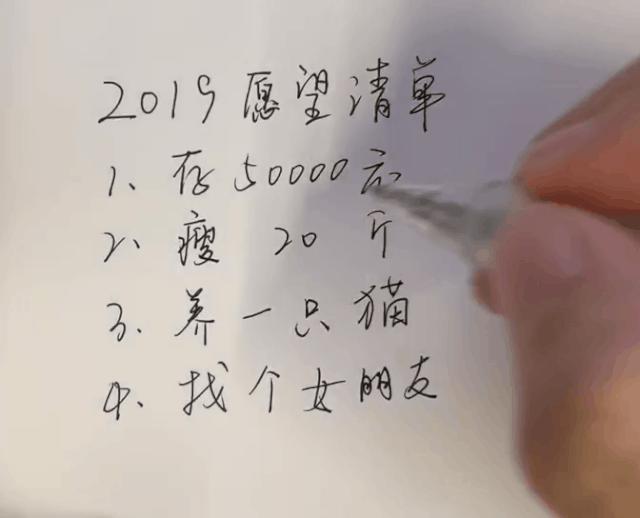 2019愿望清单
1、存50000元
2、瘦 20 斤
3、养一只猫
4、找个女朋友